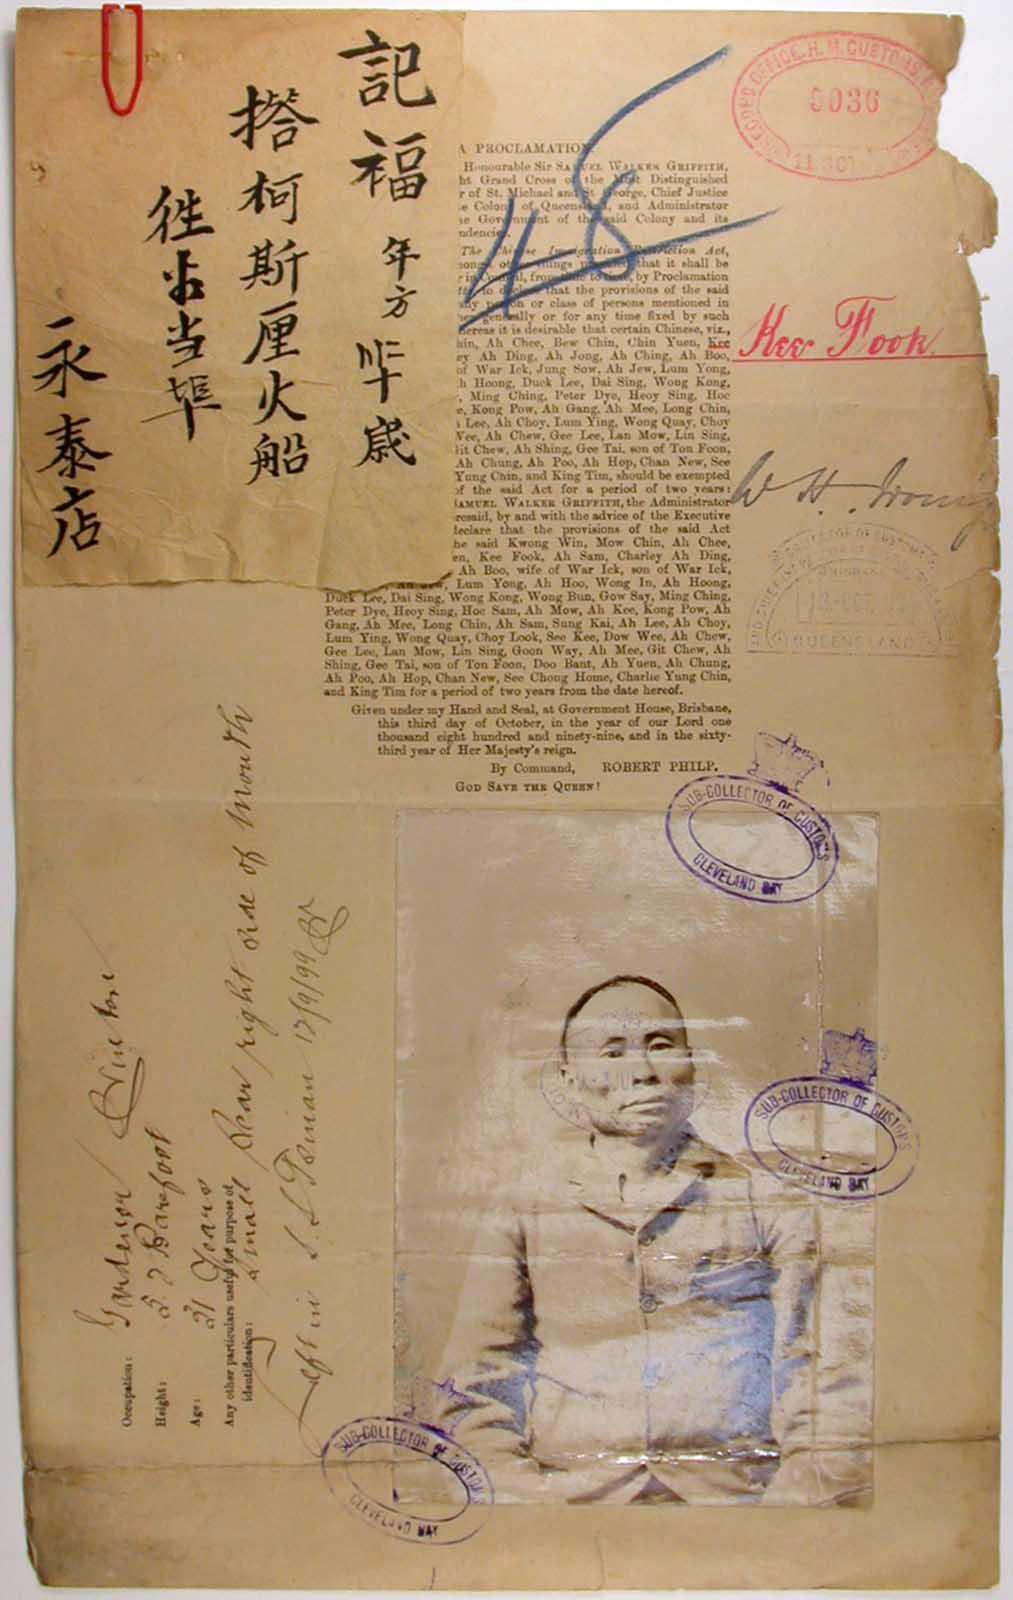 記福 年方 歲
搭柯斯厘火船
徃 当埠
永泰店
RECORD OFFICE, H.M. CUSTOMS,
9036
11 OCT
48
A PROCLAMATION
Honourable Sir SAMUEL WALKER GRIFFITH,
ht Grand Cross of the Most Distinguished
r of St. Michael and St. George, Chief Justice
e Colony of Queensland, and Administrator
he Government of the said Colony and its
ndencies.
The Chinese Immigration Restriction Act,
ongst other things provided that it shall be
r in Council, from time to time, by Proclamation
to declare that the provisions of the said
ny person or class of persons mentioned in
her generally or for any time fixed by such
hereas it is desirable that certain Chinese, viz.,
hin, Ah Chee, Bew Chin, Chin Yuen, Kee
ey Ah Ding, Ah Jong, Ah Ching, Ah Boo,
of War Ick, Jung Sow, Ah Jew, Lum Yong,
h Hoong, Duck Lee, Dai Sing, Wong Kong,
, Ming Ching, Peter Dye, Heoy Sing, Hoc
e, Kong Pow, Ah Gang, Ah Mee, Long Chin,
i Lee, Ah Choy, Lum Ying, Wong Quay, Choy
Wee, Ah Chew, Gee Lee, Lan Mow, Lin Sing,
Git Chew, Ah Shing, Gee Tai, son of Ton Foon,
Ah Chung, Ah Poo, Ah Hop, Chan New, See
Yung Chin, and King Tim, should be exempted
of the said Act for a period of two years:
SAMUEL WALKER GRIFFITH, the Administrator
resaid, by and with the advice of the Executive
declare that the provisions of the said Act
he said Kwong Win, Mow Chin, Ah Chee,
en, Kee Fook, Ah Sam, Charley Ah Ding,
Ah Boo, wife of War Ick, son of War Ick,
Ah Jew, Lum Yong, Ah Hoo, Wong In, Ah Hoong,
Duck Lee, Dai Sing, Wong Kong, Wong Bun, Gow Say, Ming Ching,
Peter Dye, Heoy Sing, Hoc Sam, Ah Mow, Ah Kee, Kong Pow, Ah
Gang, Ah Mee, Long Chin, Ah Sam, Sung Kai, Ah Lee, Ah Choy,
Lum Ying, Wong Quay, Choy Look, See Kee, Dow Wee, Ah Chew,
Gee Lee, Lan Mow, Lin Sing, Goon Way, Ah Mee, Git Chew, Ah
Shing, Gee Tai, son of Ton Foon, Doo Bant, Ah Yuen, Ah Chung,
Ah Poo, Ah Hop, Chan New, See Chong Home, Charlie Yung Chin,
and King Tim for a period of two years from the date hereof.
Given under my Hand and Seal, at Government House, Brisbane,
this third day of October, in the year of our Lord one
thousand eight hundred and ninety-nine, and in the sixty-
third year of Her Majesty's reign.
By Command, ROBERT PHILP.
GOD SAVE THE QUEEN!
Kee Fook
W H
COLLECTOR OF CUSTOMS
BRISBANE
13 OCT
QUEENSLAND
SUB-COLLECTOR OF CUSTOMS
CLEVELAND BAY
SUB-COLLECTOR OF CUSTOMS
CLEVELAND BAY
SUB-COLLECTOR OF CUSTOMS
CLEVELAND BAY
Occupation: Gardener
Height: 5.7 Barefoot
Age: 31 Years
Any other particulars useful for purpose of
identification: Small Scar right side of mouth
Left in S.S. 12/9/99